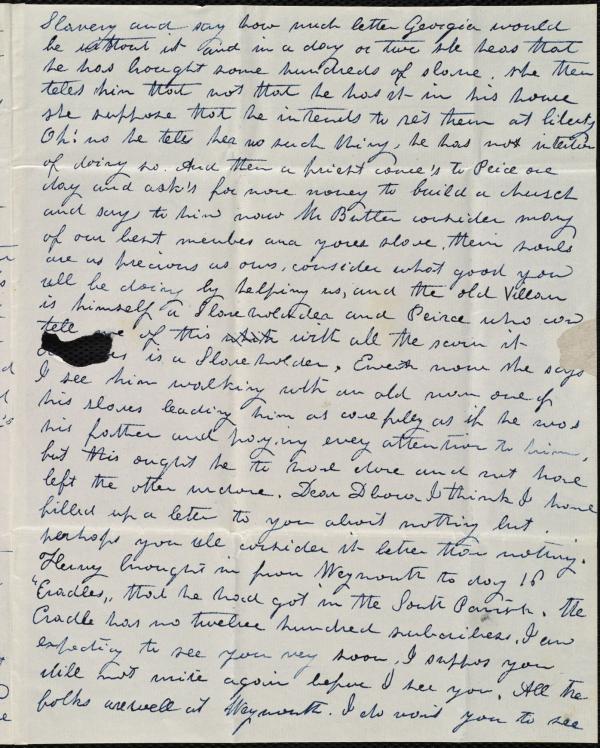 Slavery and say how much better Georgia would
be without it and in a day or two she hears that
he has bought some hundreds of slaves. she then
teles him that not that he has it in his house
she suppose that he intends to set them at liberty
Oh! no he teles her no such thing, he has not intention
of doing so. And then a priest come's to Peice one
day and ask's for more money to build a church
and says to him now Mr Butler consider many
of our best member are your slave, their souls
are as precious as ours, consider what good you
will be doing by helping us, and the old Villian
is himself a Slaveholder and Peirce who can
tell of this with all the scorn it
is a Slaveholder. Even now she says
I see him walking with an old man one of
his slaves leading him as carefully as if he was
his father and paying every attention to him,
but this ought he to have done and not have
left the other undone. Dear Dbora I think I have
filled up a letter to you about nothing but
perhaps you will consider it better than nothing.
Henry brought in from Weymouth to day 18
"Cradles,, that he had got in the South Parish. the
Cradle has no twelve hundred subscribers. I am
expecting to see you very soon, I suppos you
will not write again before I see you. All the
folks are well at Weymouth. I do want you to see